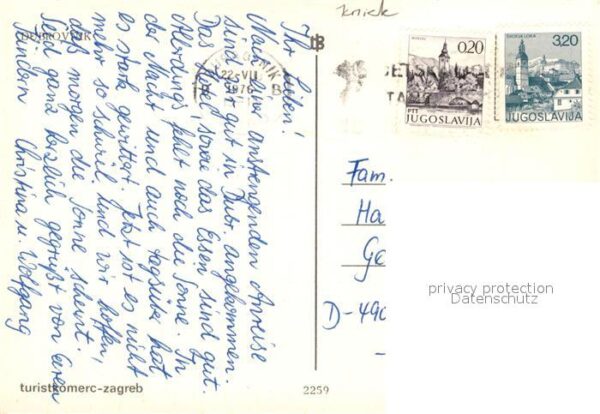 knick
DUBROVNIK
22-VII
1976
B
0.20
PTT
JUGOSLAVIJA
ŠKOFJA LOKA
3,20
JUGOSLAVIJA
Ihr Lieben!
Nach einer anstrengenden Anreise
sind wir gut in Dubr. angekommen.
Das Hotel, sowie das Essen sind gut.
Allerdings fehlt noch die Sonne. In
der Nacht und auch tagsüber hat
es stark gewittert. Jetzt ist es nicht
mehr so schwül und wir hoffen,
daß morgen die Sonne scheint.
Seid ganz herzlich gegrüßt von Euren
Kindern Christina u. Wolfgang
Fam.
Ha
Ge
D-490
privacy protection
Datenschutz
turistkomerc-zagreb
2259